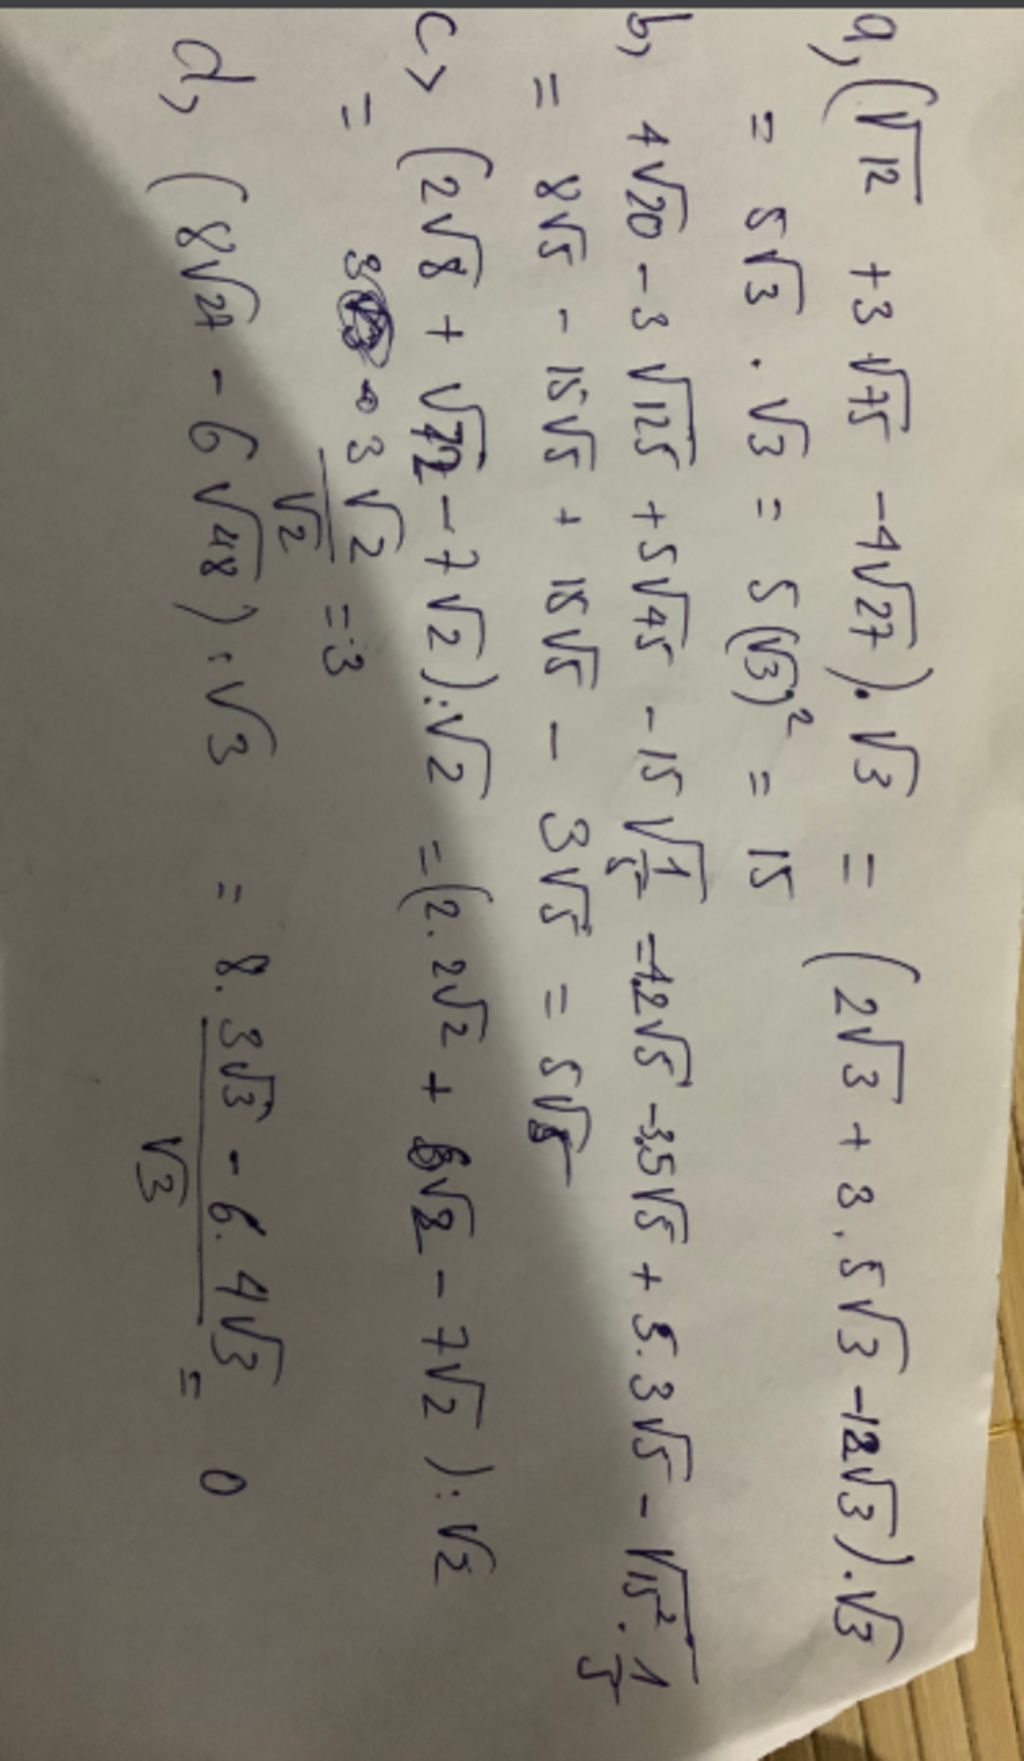 a, (√12 + 3√75 - 4√27).√3 = (2√3 + 3.5√3 - 12√3).√3
= 5√3 . √3 = 5(√3)² = 15
b, 4√20 - 3√125 + 5√45 - 15√1/5 = 4.2√5 - 3.5√5 + 5.3√5 - √15².1/5
= 8√5 - 15√5 + 15√5 - 3√5 = 5√5
c, (2√8 + √72 - 7√2):√2 = (2.2√2 + 6√2 - 7√2):√2
= 3√2/√2 = 3
d, (8√27 - 6√48):√3 = 8.3√3 - 6.4√3/√3 = 0